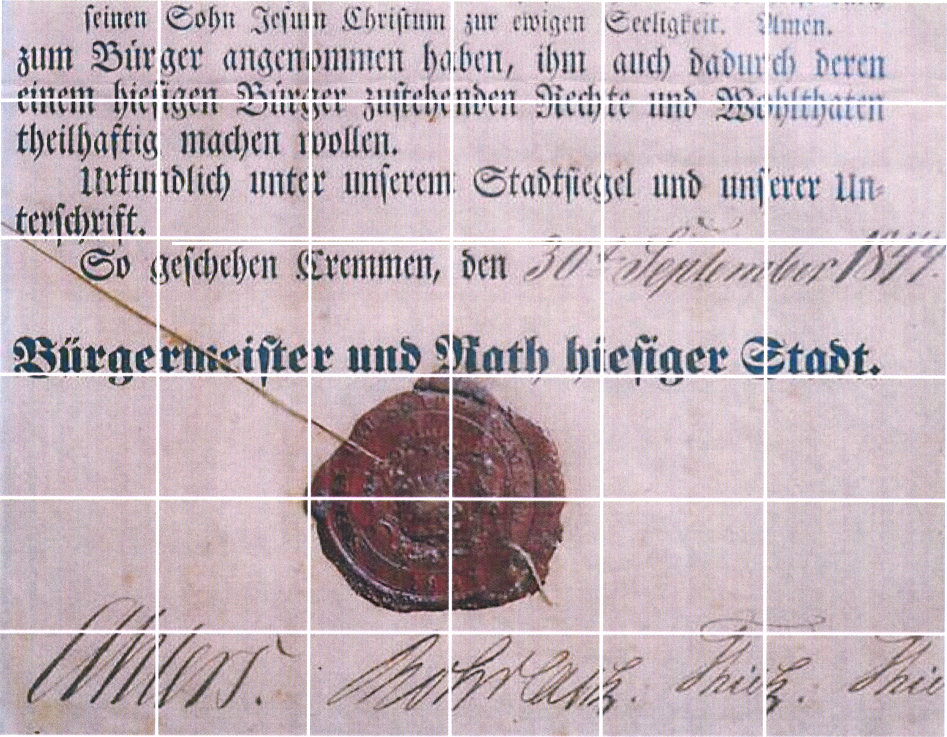 seinen Sohn Jesum Christum zur ewigen Seeligkeit. Amen.
zum Bürger angenommen haben, ihm auch dadurch deren
einem hiesigen Bürger zustehenden Rechte und Wohlthaten
theilhaftig machen wollen.
Urkundlich unter unserem Stadtsiegel und unserer Un-
terschrift.
So geschehen Cremmen, den 30t September
Bürgermeister und Rath hiesiger Stadt.